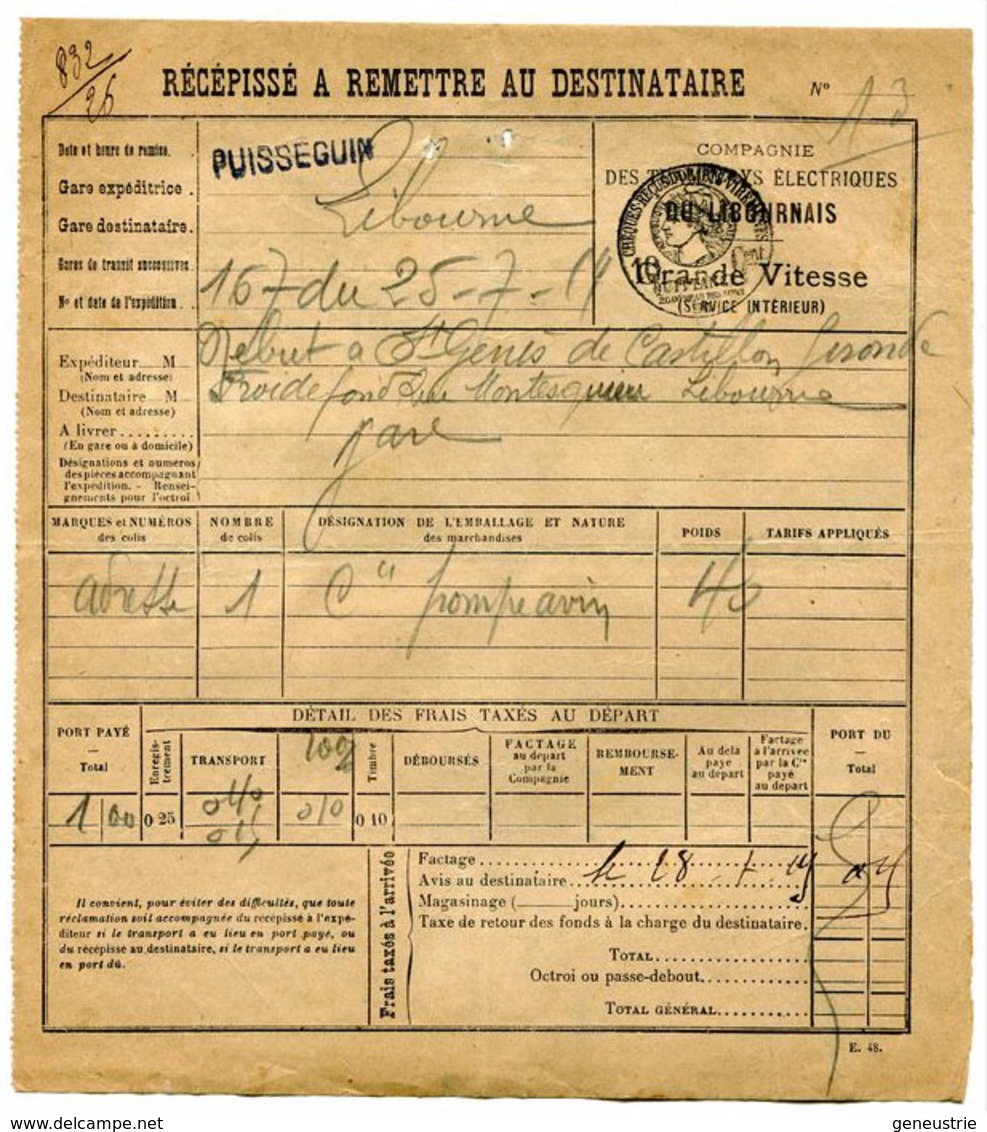 832/26
RÉCÉPISSÉ A REMETTRE AU DESTINATAIRE
N° 13
Date et heure de remise.
PUISSEGUIN
Gare expéditrice.
Gare destinataire.
Libourne
Gares de transit successives.
N° et date de l'expédition.
167 du 25-7-
COMPAGNIE
DES ÉLECTRIQUES
DU LIBOURNAIS
Grande Vitesse
(SERVICE INTÉRIEUR)
10 Cent
Expéditeur M
(Nom et adresse)
Nebut a St Genes de Castillon Gironde
Destinataire M
(Nom et adresse)
Froidefond Rue Montesquieu Libourne
A livrer
(En gare ou à domicile)
gare
Désignations et numéros
des pièces accompagnant
l'expédition. - Rensei-
gnements pour l'octroi.
MARQUES et NUMÉROS
des colis
NOMBRE
de colis
DÉSIGNATION DE L'EMBALLAGE ET NATURE
des marchandises
POIDS
TARIFS APPLIQUÉS
adresse 1 pompe a vin 40
DÉTAIL DES FRAIS TAXÉS AU DÉPART
PORT PAYÉ
—
Total
Enregis-
trement
TRANSPORT
Timbre
DÉBOURSÉS
FACTAGE
au départ
par la
Compagnie
REMBOURSE-
MENT
Au delà
payé
au départ
Factage
à l'arrivée
par la Cie
payé
au départ
PORT DU
—
Total
1 00 0 25 040 010 0 10
015
Il convient, pour éviter des difficultés, que toute
réclamation soit accompagnée du récépissé à l'expé-
diteur si le transport a eu lieu en port payé, ou
du récépissé au destinataire, si le transport a eu lieu
en port dû.
Frais taxés à l'arrivée
Factage
Avis au destinataire le 28
Magasinage ( jours)
Taxe de retour des fonds à la charge du destinataire.
TOTAL
Octroi ou passe-debout
TOTAL GÉNÉRAL
E. 48.
geneustrie